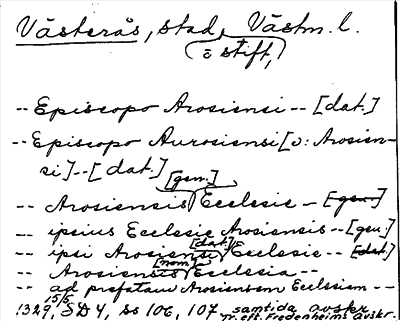 Västerås, stad, Västm. l.
o stift,
-- Episcopo Arosiensi -- [dat.]
-- Episcopo Aurosiensi [o: Arosien-
si] -- [dat.]
[gen.]
-- Arosiensis Ecclesie -- [gen.]
-- ipsius Ecclesie Arosiensis -- [gen.]
[dat.]
-- ipsi Arosiensi Ecclesie -- [dat.]
[nom.]
-- Arosiensis Ecclesia --
-- ad prefatam Arosiensem Ecclesiam --
1329 15/5 SD 4, ss 106, 107 samtida avskr.
tr. eft. Fredenheims avskr.